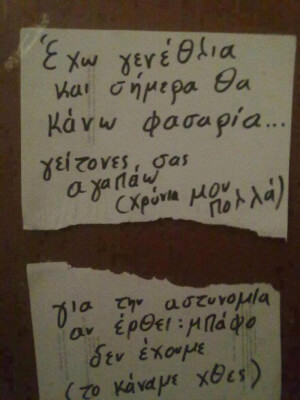 Έχω γενέθλια
και σήμερα θα
κάνω φασαρία...
γείτονες σας
αγαπάω
(χρόνια μου
πολλά)
για την αστυνομία
αν έρθει: μπάφο
δεν έχουμε
(το κάναμε χθες)